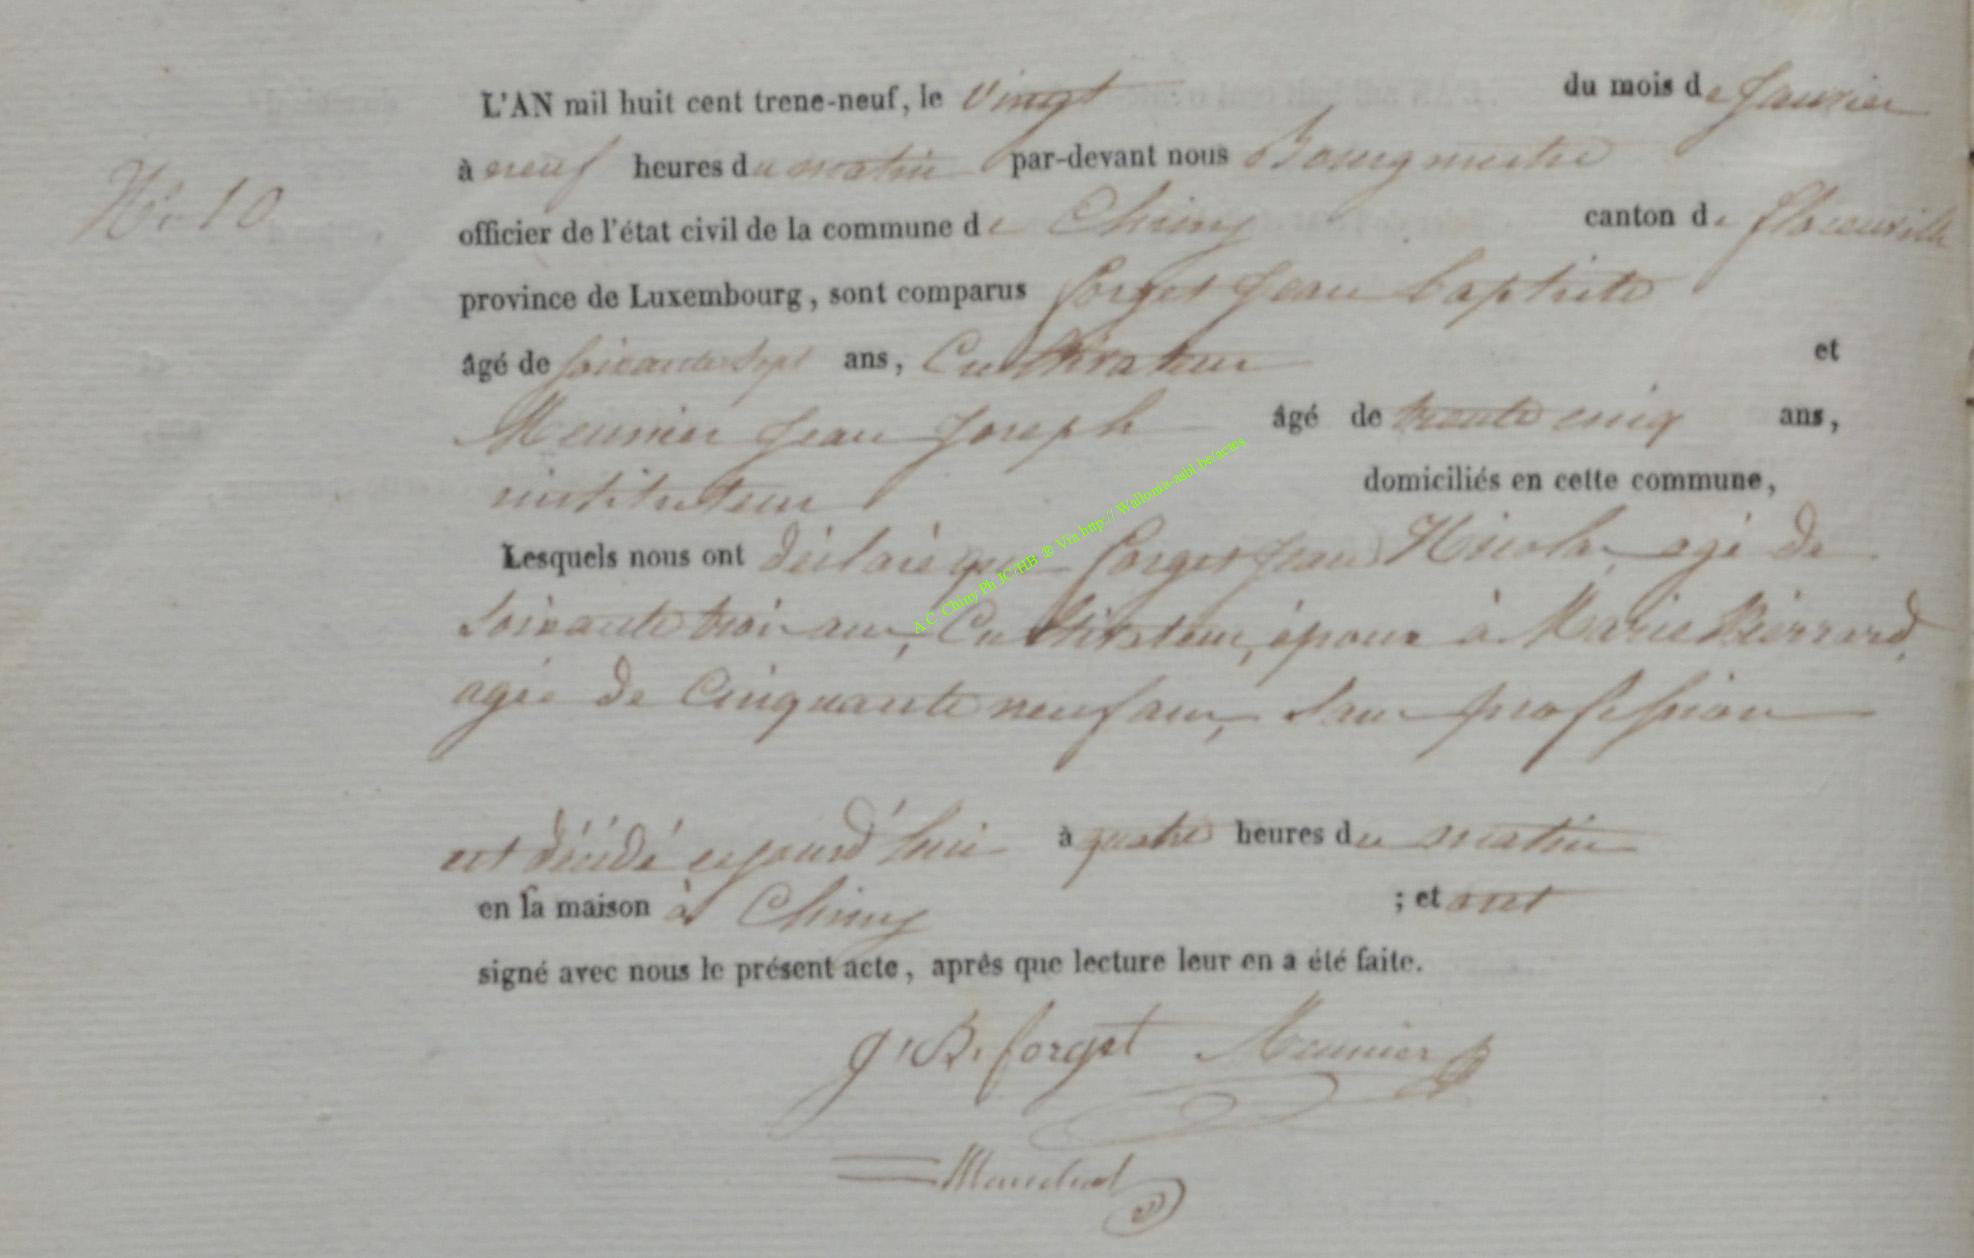 L'AN mil huit cent trene-neuf, le vingt du mois de Janvier
N° 10
à neuf heures du matin par-devant nous Bourgmestre
officier de l'état civil de la commune de Chiny canton de florenville
province de Luxembourg, sont comparus forget Jean baptiste
âgé de soixante Sept ans, Cultivateur et
Meunier Jean Joseph âgé de trente cinq ans,
instituteur domiciliés en cette commune,
Lesquels nous ont déclaré que forget Jean Nicolas, agé de
Soixante trois ans, Cultivateur, époux à Marie Pierrard,
agée de Cinquante neuf ans, Sans profession
est décédé cejourd'hui à quatre heures du matin
en sa maison à Chiny ; et ont
signé avec nous le présent acte, après que lecture leur en a été faite.
J. B. forget Meunier
Marechal
A.C. Chiny Ph JC/HB ® Via http://Wallonia-asbl.be/actes